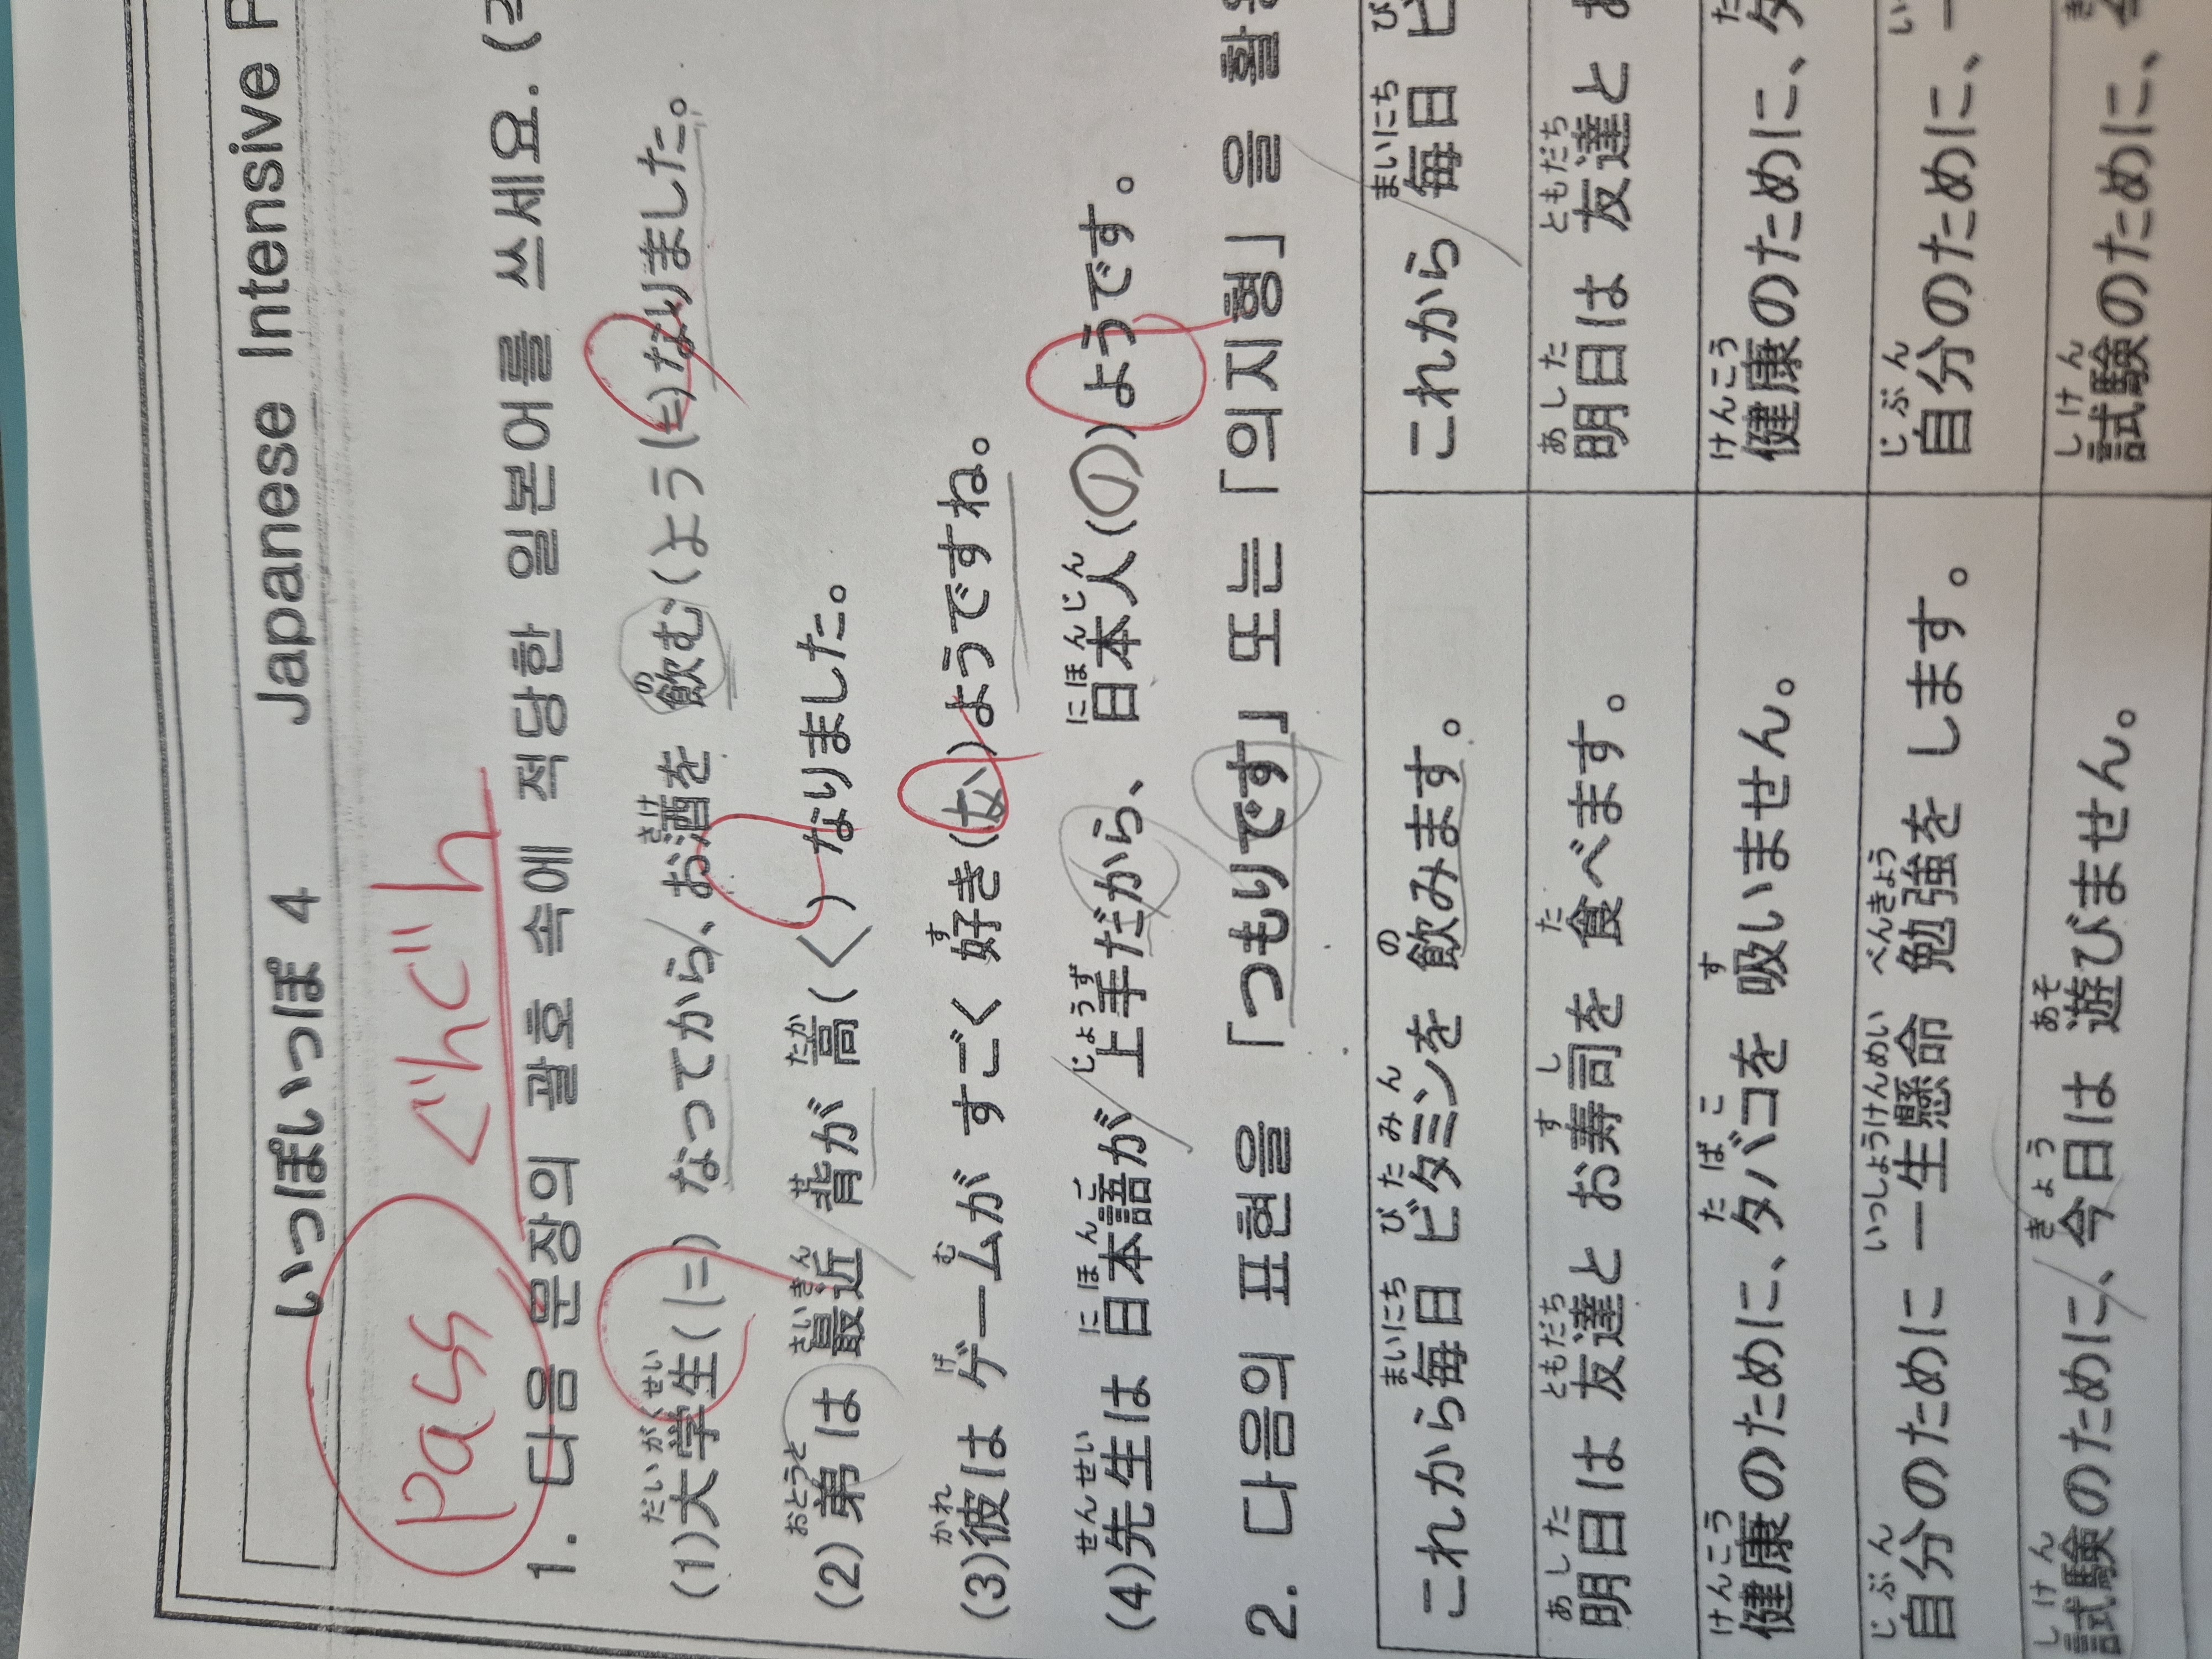 いっぽいいっぽ 4 Japanese Intensive
Pass ぐんぐん
1. 다음 문장의 괄호 속에 적당한 일본어를 쓰세요. (
だいがくせい さけ の
(1)大学生(に) なってから、お酒を 飲む(ように)なりました。
おとうと さいきん せ たか
(2)弟は 最近 背が 高(く) なりました。
かれ げ む す
(3)彼は ゲームが すごく 好き(な)ようですね。
せんせい にほんご じょうず にほんじん
(4)先生は 日本語が 上手だから、 日本人(の)ようです。
2. 다음의 표현을 「つもりです」 또는 「의지형」을 활
まいにち びたみん の まいにち び
これから毎日 ビタミンを 飲みます。 これから 毎日 ビ
あした ともだち すし た あした ともだち
明日は 友達と お寿司を 食べます。 明日は 友達と
けんこう たばこ す けんこう た
健康のために、タバコを 吸いません。 健康のために、タ
じぶん いっしょうけんめい べんきょう じぶん い
自分のために 一生懸命 勉強を します。 自分のために、一
しけん きょう あそ しけん き
試験のために、今日は 遊びません。 試験のために、